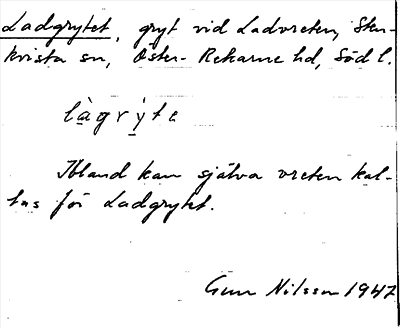 Ladgrytet, gryt vid Ladvreten, Sten-
kvista sn, Öster-Rekarne hd, Södl.
làgrỳte
Ibland kan själva vreten kal-
las för Ladgrytet.
Gun Nilsson 1947